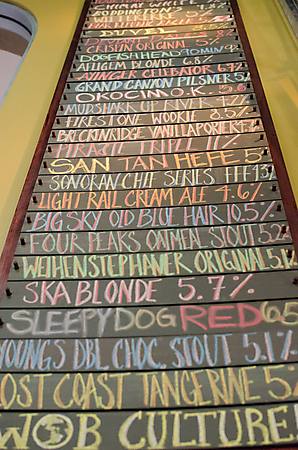 DUVEL
CRISPIN ORIGINAL 5.
DOGFISH HEAD 90 MIN 9%
AFFLIGEM BLONDE 6.8%
AYINGER CELEBRATOR 6.7%
GRAND CANYON PILSNER 5%
OKOCIM O.K. 5.6
MUDSHARK UP RIVER 4.2%
FIRESTONE WOOKIE 8.5%
BRECKINRIDGE VANILLA PORTER
PIRAAT TRIPLE 11%
SAN TAN HEFE 5
SONORAN CHEF SERIES FFF 43
LIGHT RAIL CREAM ALE 4.6%
BIG SKY OLD BLUE HAIR 10.5%
FOUR PEAKS OATMEAL STOUT 5.2
WEIHENSTEPHANER ORIGINAL 5.1
SKA BLONDE 5.7%
SLEEPY DOG RED 6.5
YOUNG'S DBL CHOC. STOUT 5.1%
OST COAST TANGERINE 5.
WOB CULTURE